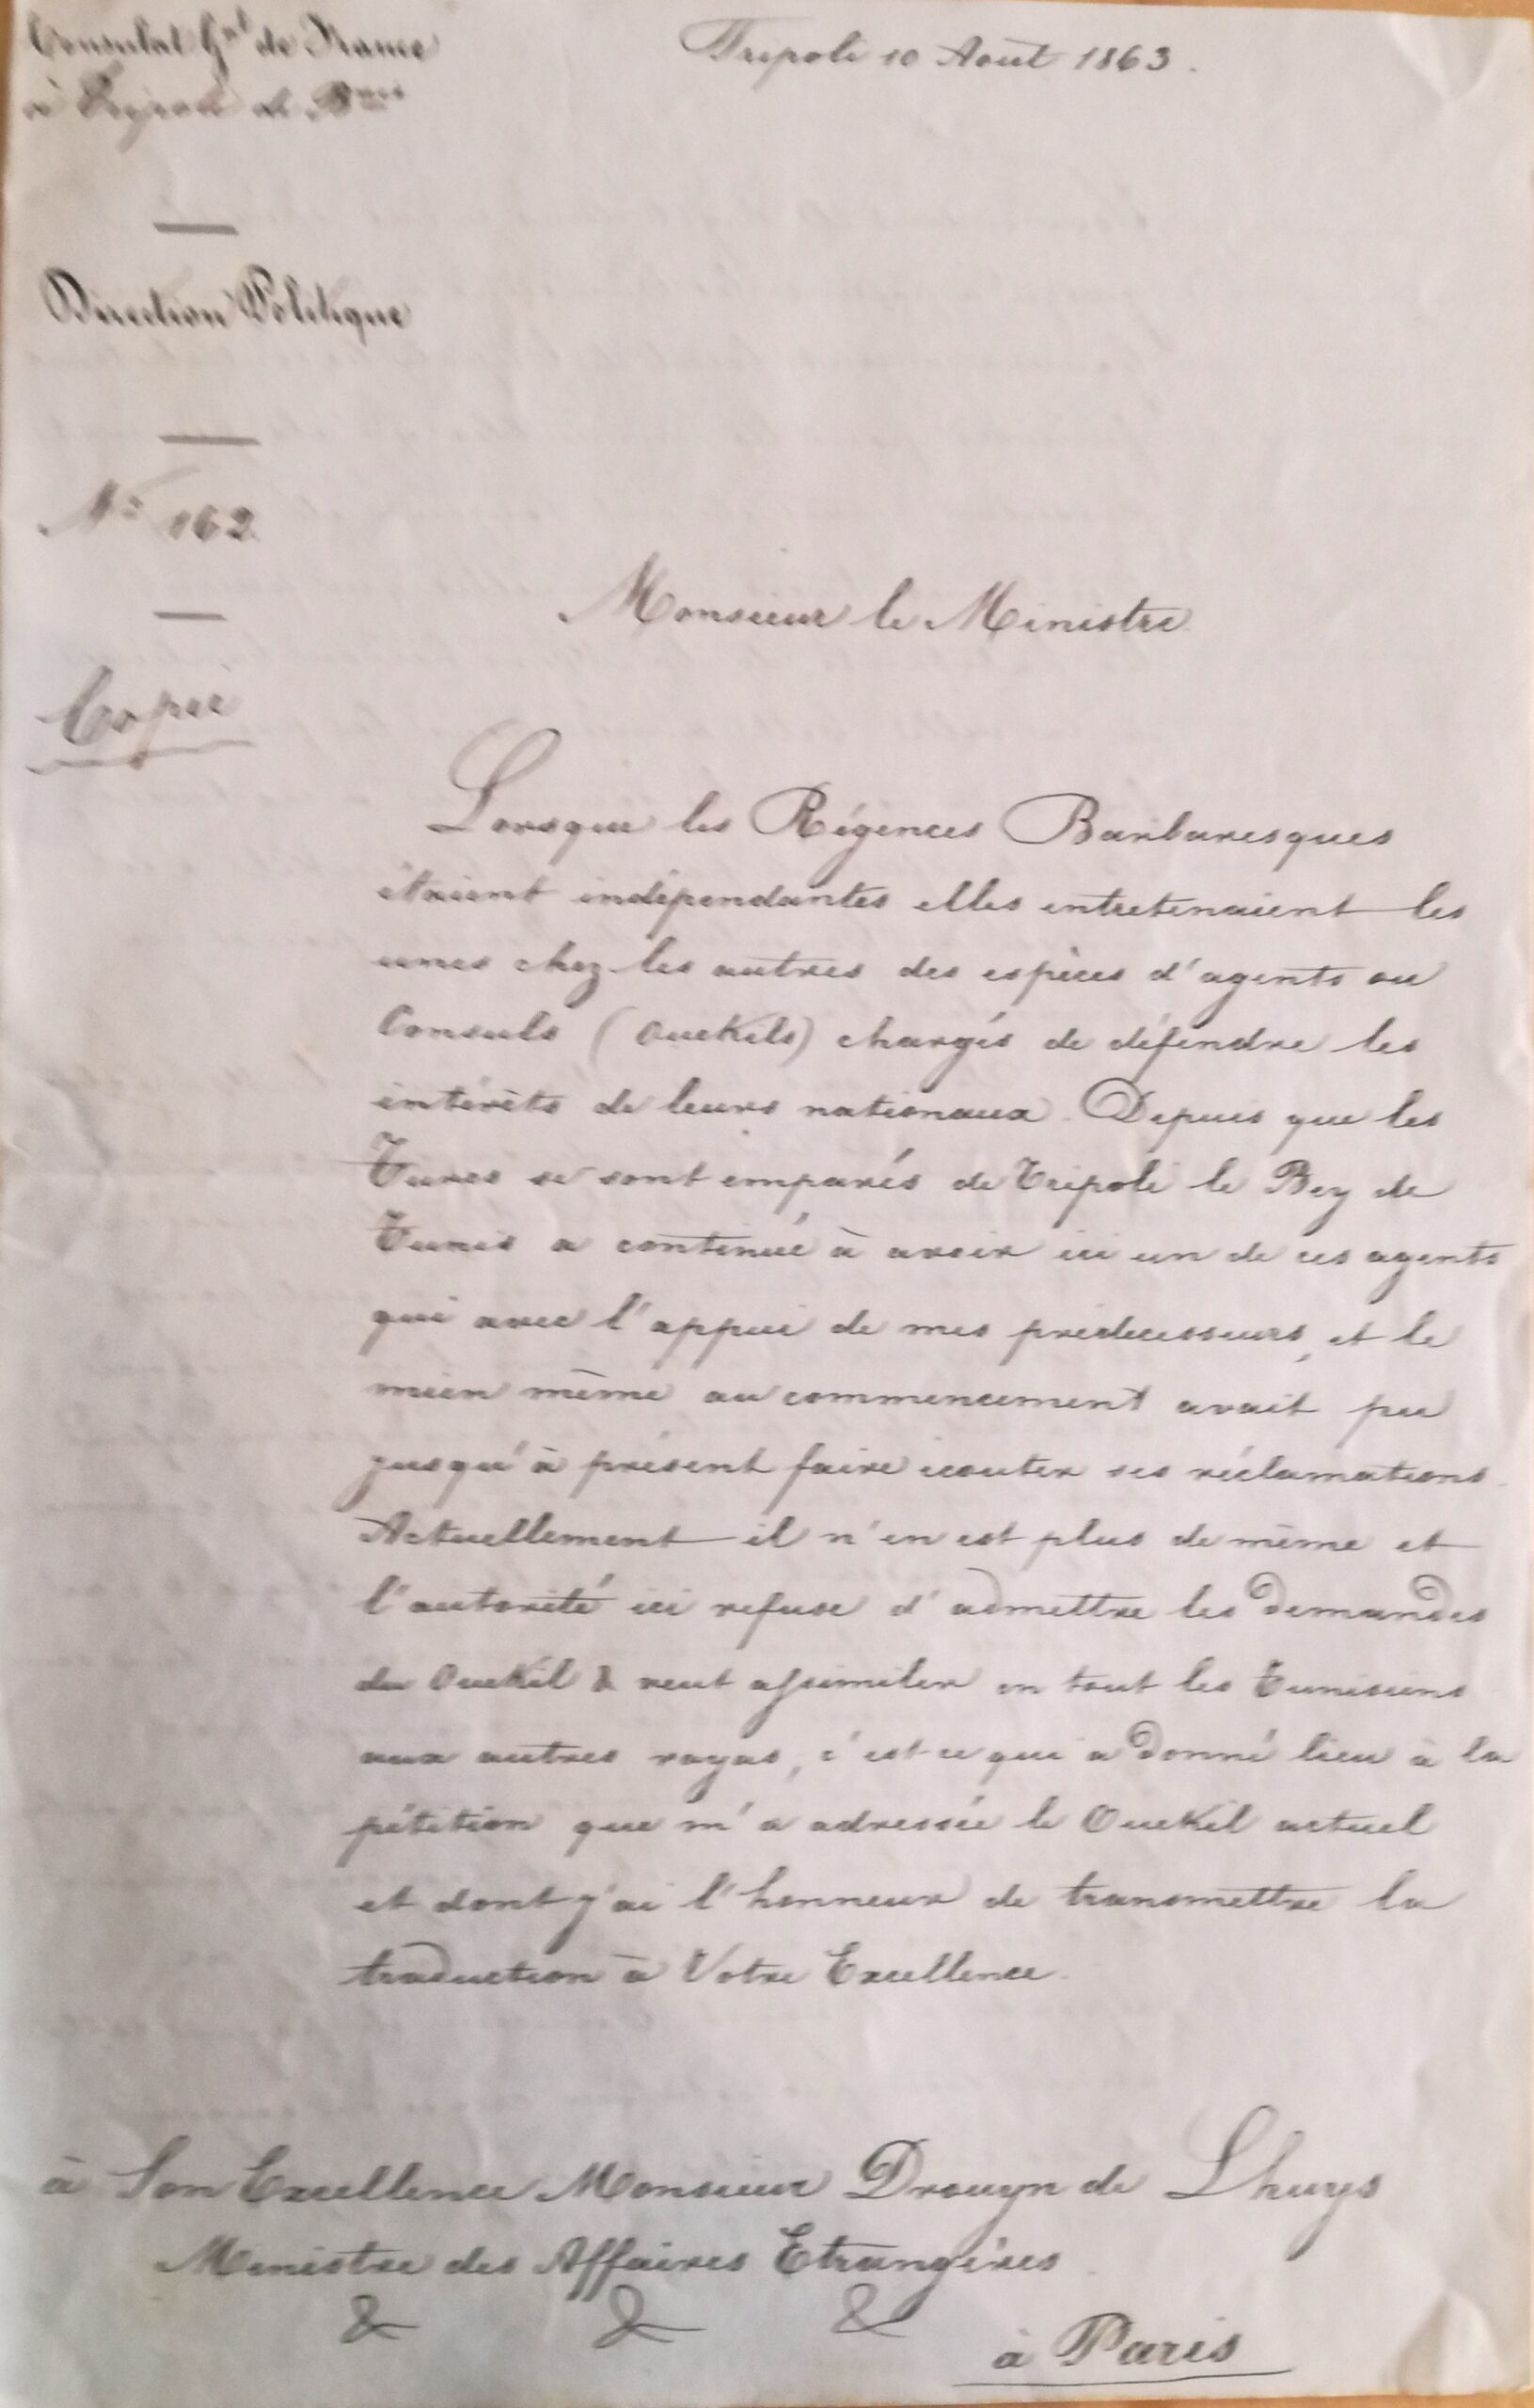 Consulat Gal de France
à Tripoli de Bies
Tripoli 10 Août 1863.
Direction Politique
No 162
Copie
Monsieur le Ministre
Lorsque les Régences Barbaresques
étaient indépendantes elles entretenaient les
unes chez les autres des espèces d'agents ou
Consuls (Ouekils) chargés de défendre les
intérêts de leurs nationaux. Depuis que les
Turcs se sont emparés de Tripoli le Bey de
Tunis a continué à avoir ici un de ces agents
qui avec l'appui de mes prédecesseurs, et le
mien même au commencement avait pu
jusqu'à présent faire écouter ses réclamations.
Actuellement il n'en est plus de même et
l'autorité ici refuse d'admettre les demandes
du Ouekil & veut assimiler en tout les Tunisiens
aux autres rayas, c'est ce qui a donné lieu à la
pétition que m'a adressée le Ouekil actuel
et dont j'ai l'honneur de transmettre la
traduction à Votre Excellence.
à Son Excellence Monsieur Drouyn de Lhuys
Ministre des Affaires Etrangères
& & &
à Paris